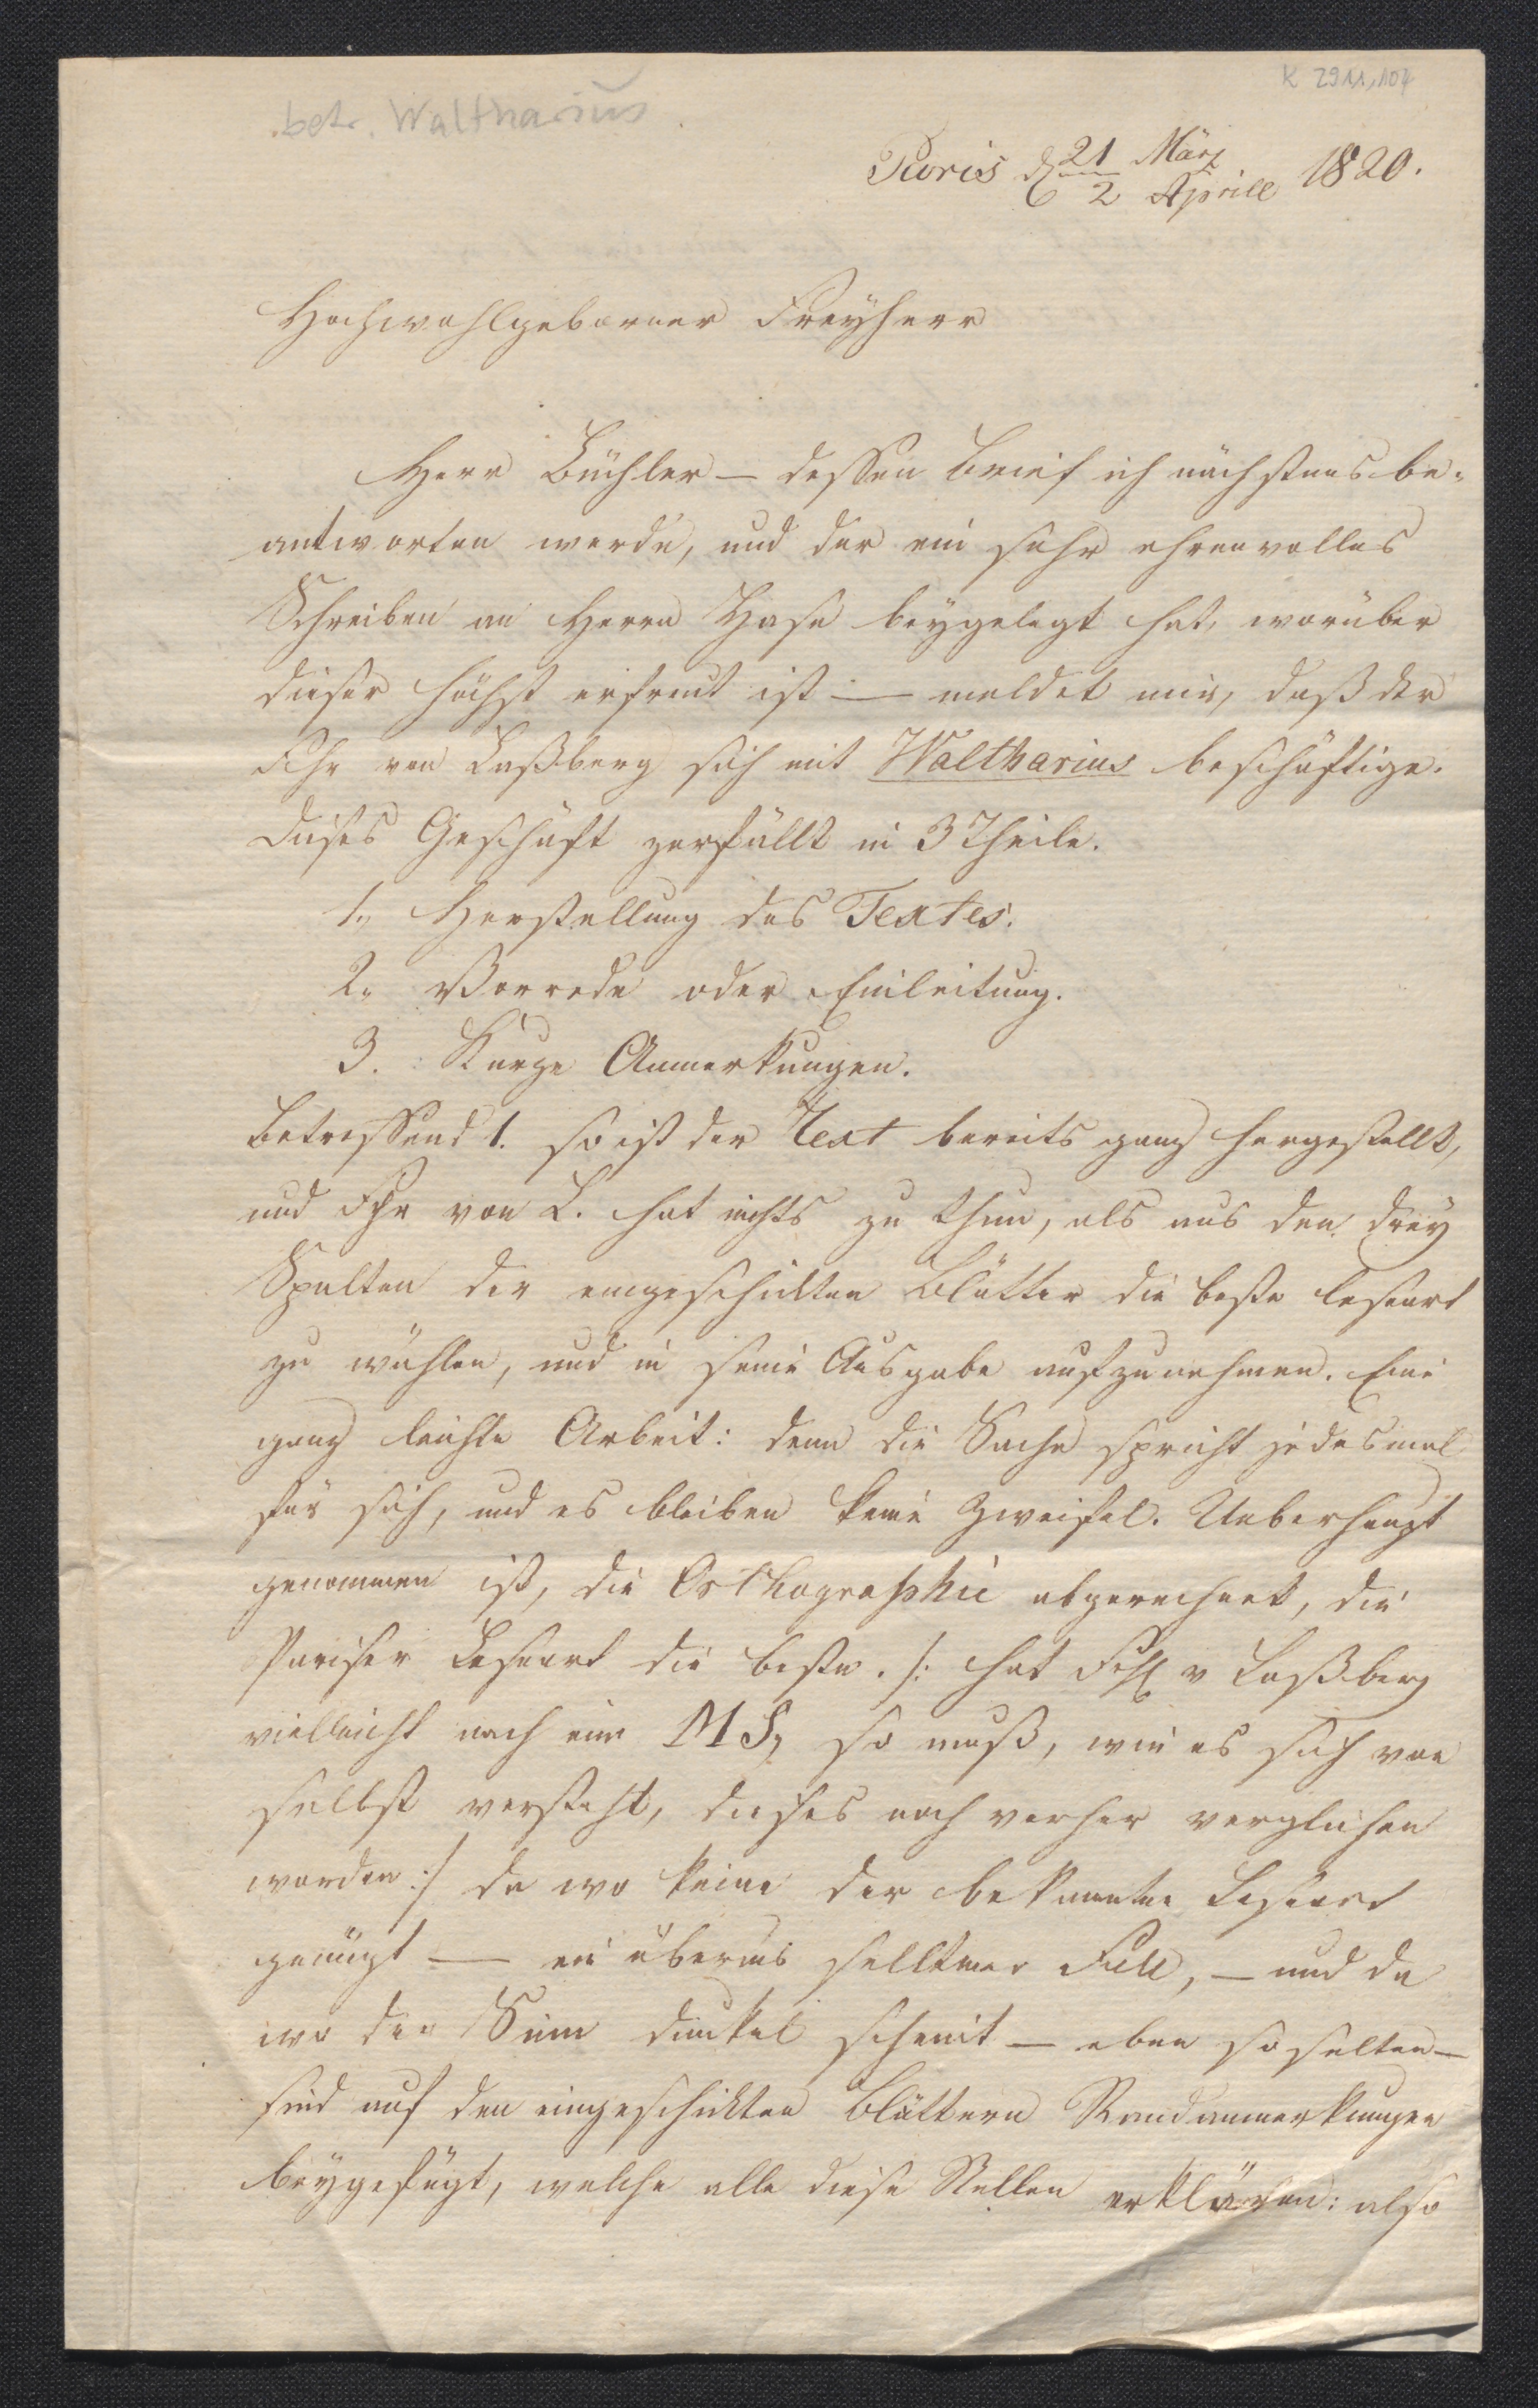 K 2911,107
betr. Waltharius.
Paris d 21 März 1820.
2 Aprill
Hochwohlgeborner Freyherr
Herr Büchler — dessen Brief ich nächstens be-
antworten werde, und der ein sehr ehrenvolles
Schreiben an Herrn Hase beygelegt hat, worüber
dieser höchst erfreut ist — meldet mir, daß der
Fhr von Laßberg sich mit Waltharius beschäftige.
Dieses Geschäft zerfällt in 3 Theile.
1, Herstellung des Textes.
2, Vorrede oder Einleitung.
3. Kurze Anmerkungen.
Betreffend 1. so ist der Text bereits ganz hergestellt,
und Fhr von L. hat nichts zu thun, als aus den drey
Spalten der eingeschickten Blätter die beste Leseart
zu wählen, und in seine Ausgabe aufzunehmen. Eine
ganz leichte Arbeit: denn die Sache spricht jedesmal
für sich, und es bleiben keine Zweifel. Ueberhaupt
genommen ist, die Orthographie abgerechnet, die
Pariser Leseart die beste. /: hat Frh v Laßberg
vielleicht noch ein MS, so muß, wie es sich von
selbst versteht, dieses noch vorher verglichen
werden :/ da wo keine der bekannten Leseart
genügt — ein überaus selltener Fall, — und da
wo der Sinn dunkel scheint — eben so selten —
sind auf den eingeschickten Blättern Randanmerkungen
beygefügt, welche alle diese Stellen erklären: also